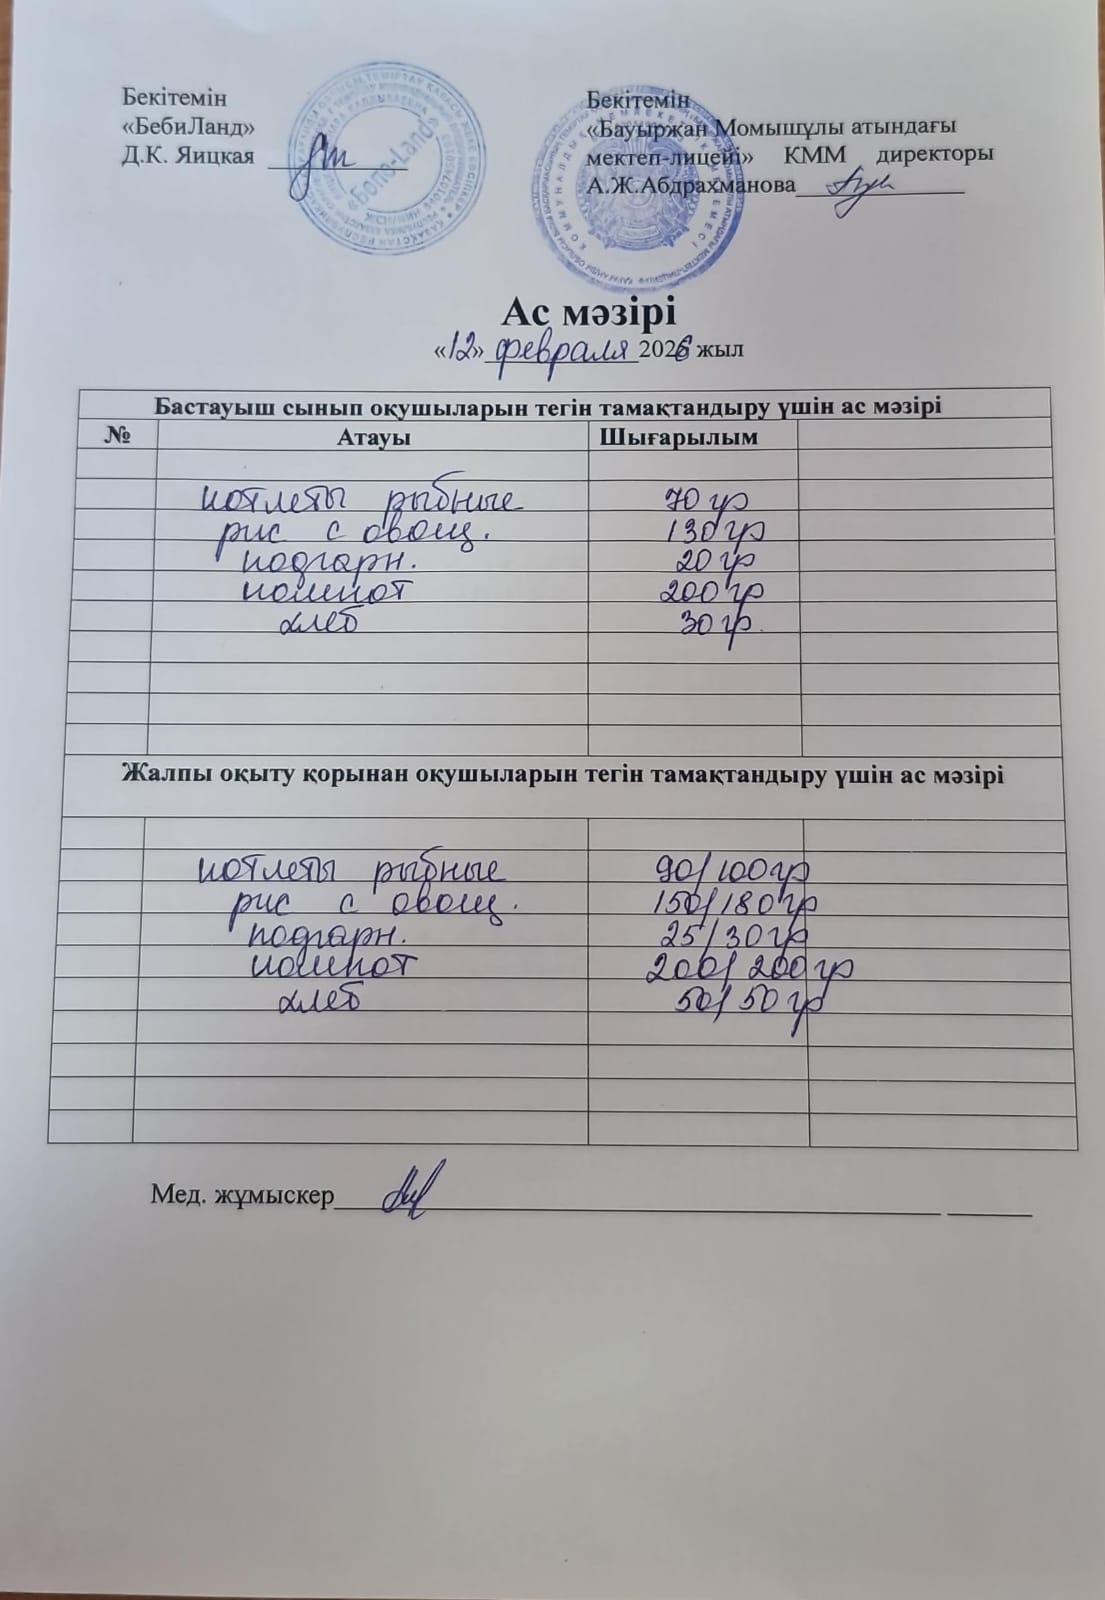 Бекітемін
«БебиЛанд»
Д.К. Яицкая
Бекітемін
«Бауыржан Момышұлы атындағы
мектеп-лицейі» КММ директоры
А.Ж.Абдрахманова
«Bono-Land»
КОММУНАЛДЫҚ МЕМЛЕКЕТТІК МЕКЕМЕСІ
Ас мәзірі
«12» февраля 2026 жыл
Бастауыш сынып оқушыларын тегін тамақтандыру үшін ас мәзірі
№ Атауы Шығарылым
котлеты рыбные 70 гр
рис с овощ. 130 гр
подгарн. 20 гр
компот 200 гр
хлеб 30 гр.
Жалпы оқыту қорынан оқушыларын тегін тамақтандыру үшін ас мәзірі
котлеты рыбные 90/100 гр
рис с овощ. 150/180 гр
подгарн. 25/30 гр
компот 200/200 гр
хлеб 50/50 гр
Мед. жұмыскер